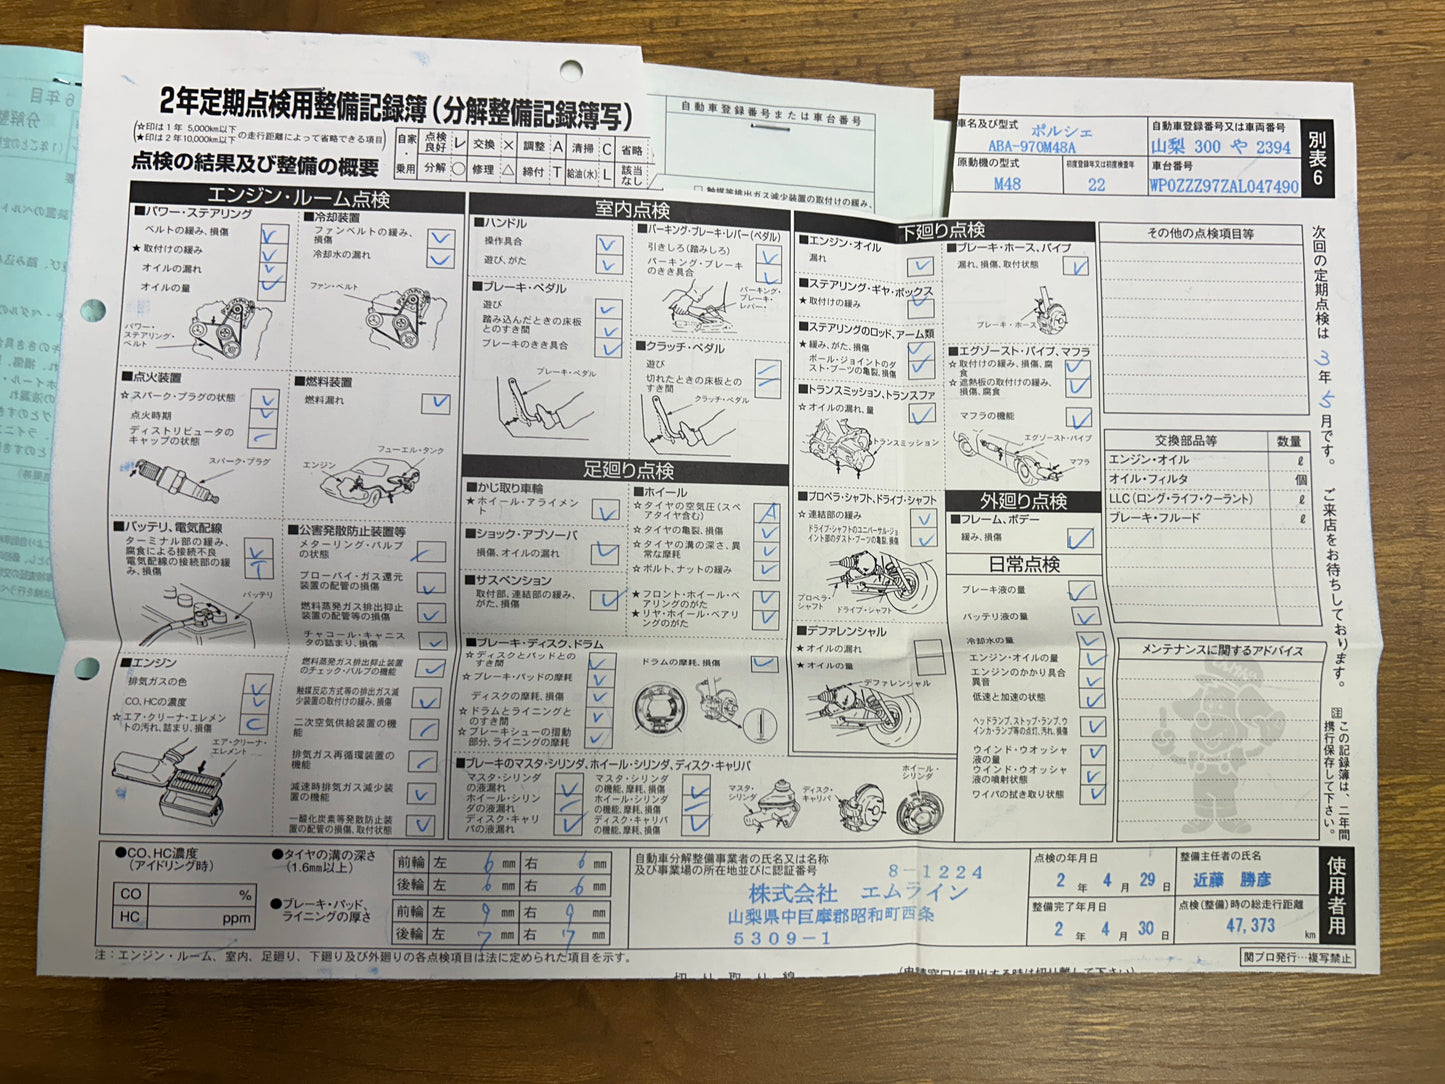 2年定期点検用整備記録簿(分解整備記録簿写)
☆印は1年 5,000km以下
★印は2年10,000km以下 の走行距離によって省略できる項目
自家・乗用
点検良好 レ 交換 × 調整 A 清掃 C 省略
分解 ○ 修理 △ 締付 T 給油(水) L 該当なし
点検の結果及び整備の概要
自動車登録番号または車台番号
車名及び型式
ポルシェ
ABA-970M48A
自動車登録番号又は車両番号
山梨 300 や 2394
原動機の型式
M48
初度登録年又は初度検査年
22
車台番号
WP0ZZZ97ZAL047490
別表6
エンジン・ルーム点検
■パワー・ステアリング
ベルトの緩み、損傷
★取付けの緩み
オイルの漏れ
オイルの量
パワー・ステアリング・ベルト
■冷却装置
ファンベルトの緩み、損傷
冷却水の漏れ
ファン・ベルト
■点火装置
☆スパーク・プラグの状態
点火時期
ディストリビュータのキャップの状態
スパーク・プラグ
■燃料装置
燃料漏れ
フューエル・タンク
エンジン
■バッテリ、電気配線
ターミナル部の緩み、腐食による接続不良
電気配線の接続部の緩み、損傷
T
バッテリ
■公害発散防止装置等
メターリング・バルブの状態
ブローバイ・ガス還元装置の配管の損傷
燃料蒸発ガス排出抑止装置の配管等の損傷
チャコール・キャニスタの詰まり、損傷
燃料蒸発ガス排出抑止装置のチェック・バルブの機能
触媒反応方式等の排出ガス減少装置の取付けの緩み、損傷
二次空気供給装置の機能
排気ガス再循環装置の機能
減速時排気ガス減少装置の機能
一酸化炭素等発散防止装置の配管の損傷、取付状態
■エンジン
排気ガスの色
CO、HCの濃度
☆エア・クリーナ・エレメントの汚れ、詰まり、損傷
C
エア・クリーナ・エレメント
室内点検
■ハンドル
操作具合
遊び、がた
■ブレーキ・ペダル
遊び
踏み込んだときの床板とのすき間
ブレーキのきき具合
ブレーキ・ペダル
■パーキング・ブレーキ・レバー(ペダル)
引きしろ(踏みしろ)
パーキング・ブレーキのきき具合
パーキング・ブレーキ・レバー
■クラッチ・ペダル
遊び
切れたときの床板とのすき間
クラッチ・ペダル
足廻り点検
■かじ取り車輪
★ホイール・アライメント
■ショック・アブソーバ
損傷、オイルの漏れ
■サスペンション
取付部、連結部の緩み、がた、損傷
■ホイール
☆タイヤの空気圧(スペアタイヤ含む)
A
☆タイヤの亀裂、損傷
☆タイヤの溝の深さ、異常な摩耗
☆ボルト、ナットの緩み
★フロント・ホイール・ベアリングのがた
★リヤ・ホイール・ベアリングのがた
■ブレーキ・ディスク、ドラム
☆ディスクとパッドとのすき間
☆ブレーキ・パッドの摩耗
ディスクの摩耗、損傷
☆ドラムとライニングとのすき間
☆ブレーキシューの摺動部分、ライニングの摩耗
ドラムの摩耗、損傷
■ブレーキのマスタ・シリンダ、ホイール・シリンダ、ディスク・キャリパ
マスタ・シリンダの液漏れ
ホイール・シリンダの液漏れ
ディスク・キャリパの液漏れ
マスタ・シリンダの機能、摩耗、損傷
ホイール・シリンダの機能、摩耗、損傷
ディスク・キャリパの機能、摩耗、損傷
マスタ・シリンダ
ディスク・キャリパ
ホイール・シリンダ
下廻り点検
■エンジン・オイル
漏れ
■ステアリング・ギヤ・ボックス
★取付けの緩み
■ステアリングのロッド、アーム類
★緩み、がた、損傷
ボール・ジョイントのダスト・ブーツの亀裂、損傷
■トランスミッション、トランスファ
☆オイルの漏れ、量
トランスミッション
■プロペラ・シャフト、ドライブ・シャフト
☆連結部の緩み
ドライブ・シャフトのユニバーサル・ジョイント部のダスト・ブーツの亀裂、損傷
プロペラ・シャフト
ドライブ・シャフト
■デファレンシャル
☆オイルの漏れ
★オイルの量
デファレンシャル
■ブレーキ・ホース、パイプ
漏れ、損傷、取付状態
ブレーキ・ホース
■エグゾースト・パイプ、マフラ
☆取付けの緩み、損傷、腐食
☆遮熱板の取付けの緩み、損傷、腐食
マフラの機能
エグゾースト・パイプ
マフラ
外廻り点検
■フレーム、ボデー
緩み、損傷
日常点検
ブレーキ液の量
バッテリ液の量
冷却水の量
エンジン・オイルの量
エンジンのかかり具合異音
低速と加速の状態
ヘッドランプ、ストップ・ランプ、ウインカ・ランプ等の点灯、汚れ、損傷
ウインド・ウオッシャ液の量
ウインド・ウオッシャ液の噴射状態
ワイパの拭き取り状態
その他の点検項目等
交換部品等 数量
エンジン・オイル ℓ
オイル・フィルタ 個
LLC(ロング・ライフ・クーラント) ℓ
ブレーキ・フルード ℓ
メンテナンスに関するアドバイス
次回の定期点検は 3 年 5 月です。 ご来店をお待ちしております。
注 この記録簿は、二年間携行保存して下さい。
使用者用
●CO、HC濃度
(アイドリング時)
CO %
HC ppm
●タイヤの溝の深さ
(1.6mm以上)
前輪 左 6 mm 右 6 mm
後輪 左 6 mm 右 6 mm
●ブレーキ・パッド、ライニングの厚さ
前輪 左 9 mm 右 9 mm
後輪 左 7 mm 右 7 mm
自動車分解整備事業者の氏名又は名称
及び事業場の所在地並びに認証番号
8-1224
株式会社 エムライン
山梨県中巨摩郡昭和町西条
5309-1
点検の年月日
2 年 4 月 29 日
整備完了年月日
2 年 4 月 30 日
整備主任者の氏名
近藤 勝彦
点検(整備)時の総走行距離
47,373 km
注:エンジン・ルーム、室内、足廻り、下廻り及び外廻りの各点検項目は法に定められた項目を示す。
関プロ発行…複写禁止
切り取り線